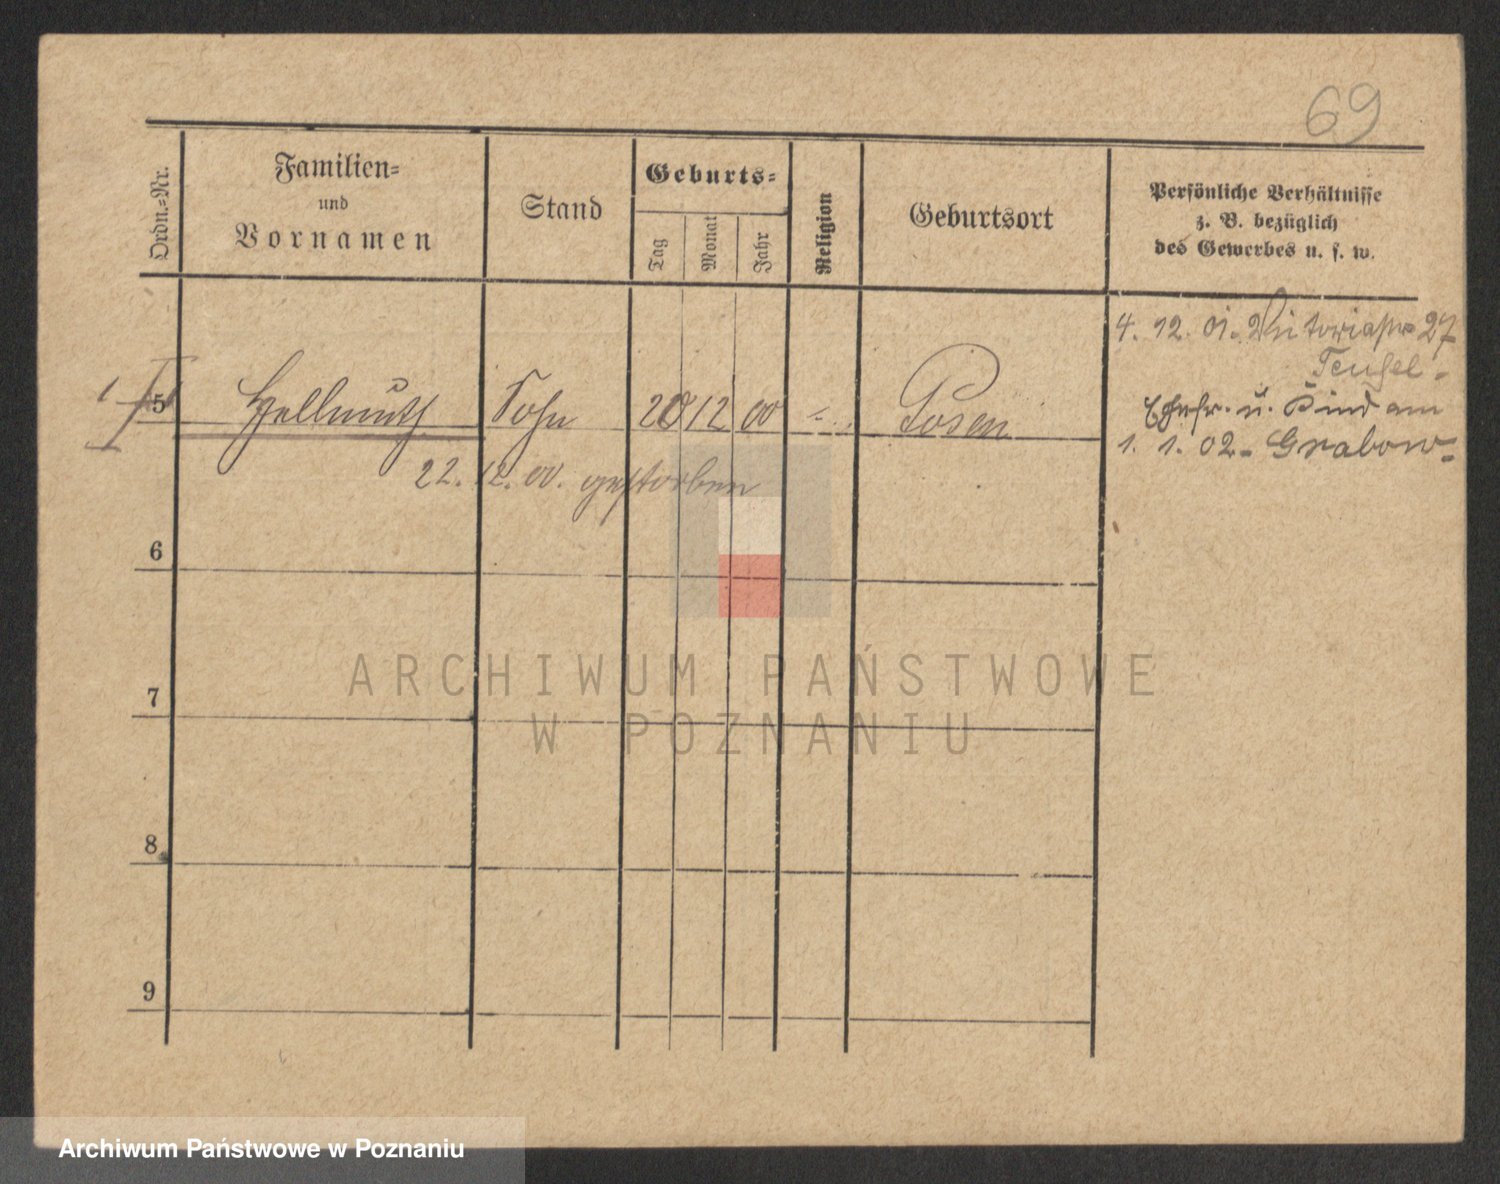 69
Ordn.=Nr.
Familien=
und
Vornamen
Stand
Geburts=
Tag
Monat
Jahr
Religion
Geburtsort
Persönliche Verhältnisse
z. B. bezüglich
des Gewerbes u. s. w.
4. 12. 01. Viktoriastr 27
Teufel.
5 Hellmuth Sohn 20 12 00 Posen
Ehefr. u. Kind am
1. 1. 02. Grabow
22. 12. 00. gestorben
6
7
8
9
ARCHIWUM PAŃSTWOWE
W POZNANIU
Archiwum Państwowe w Poznaniu